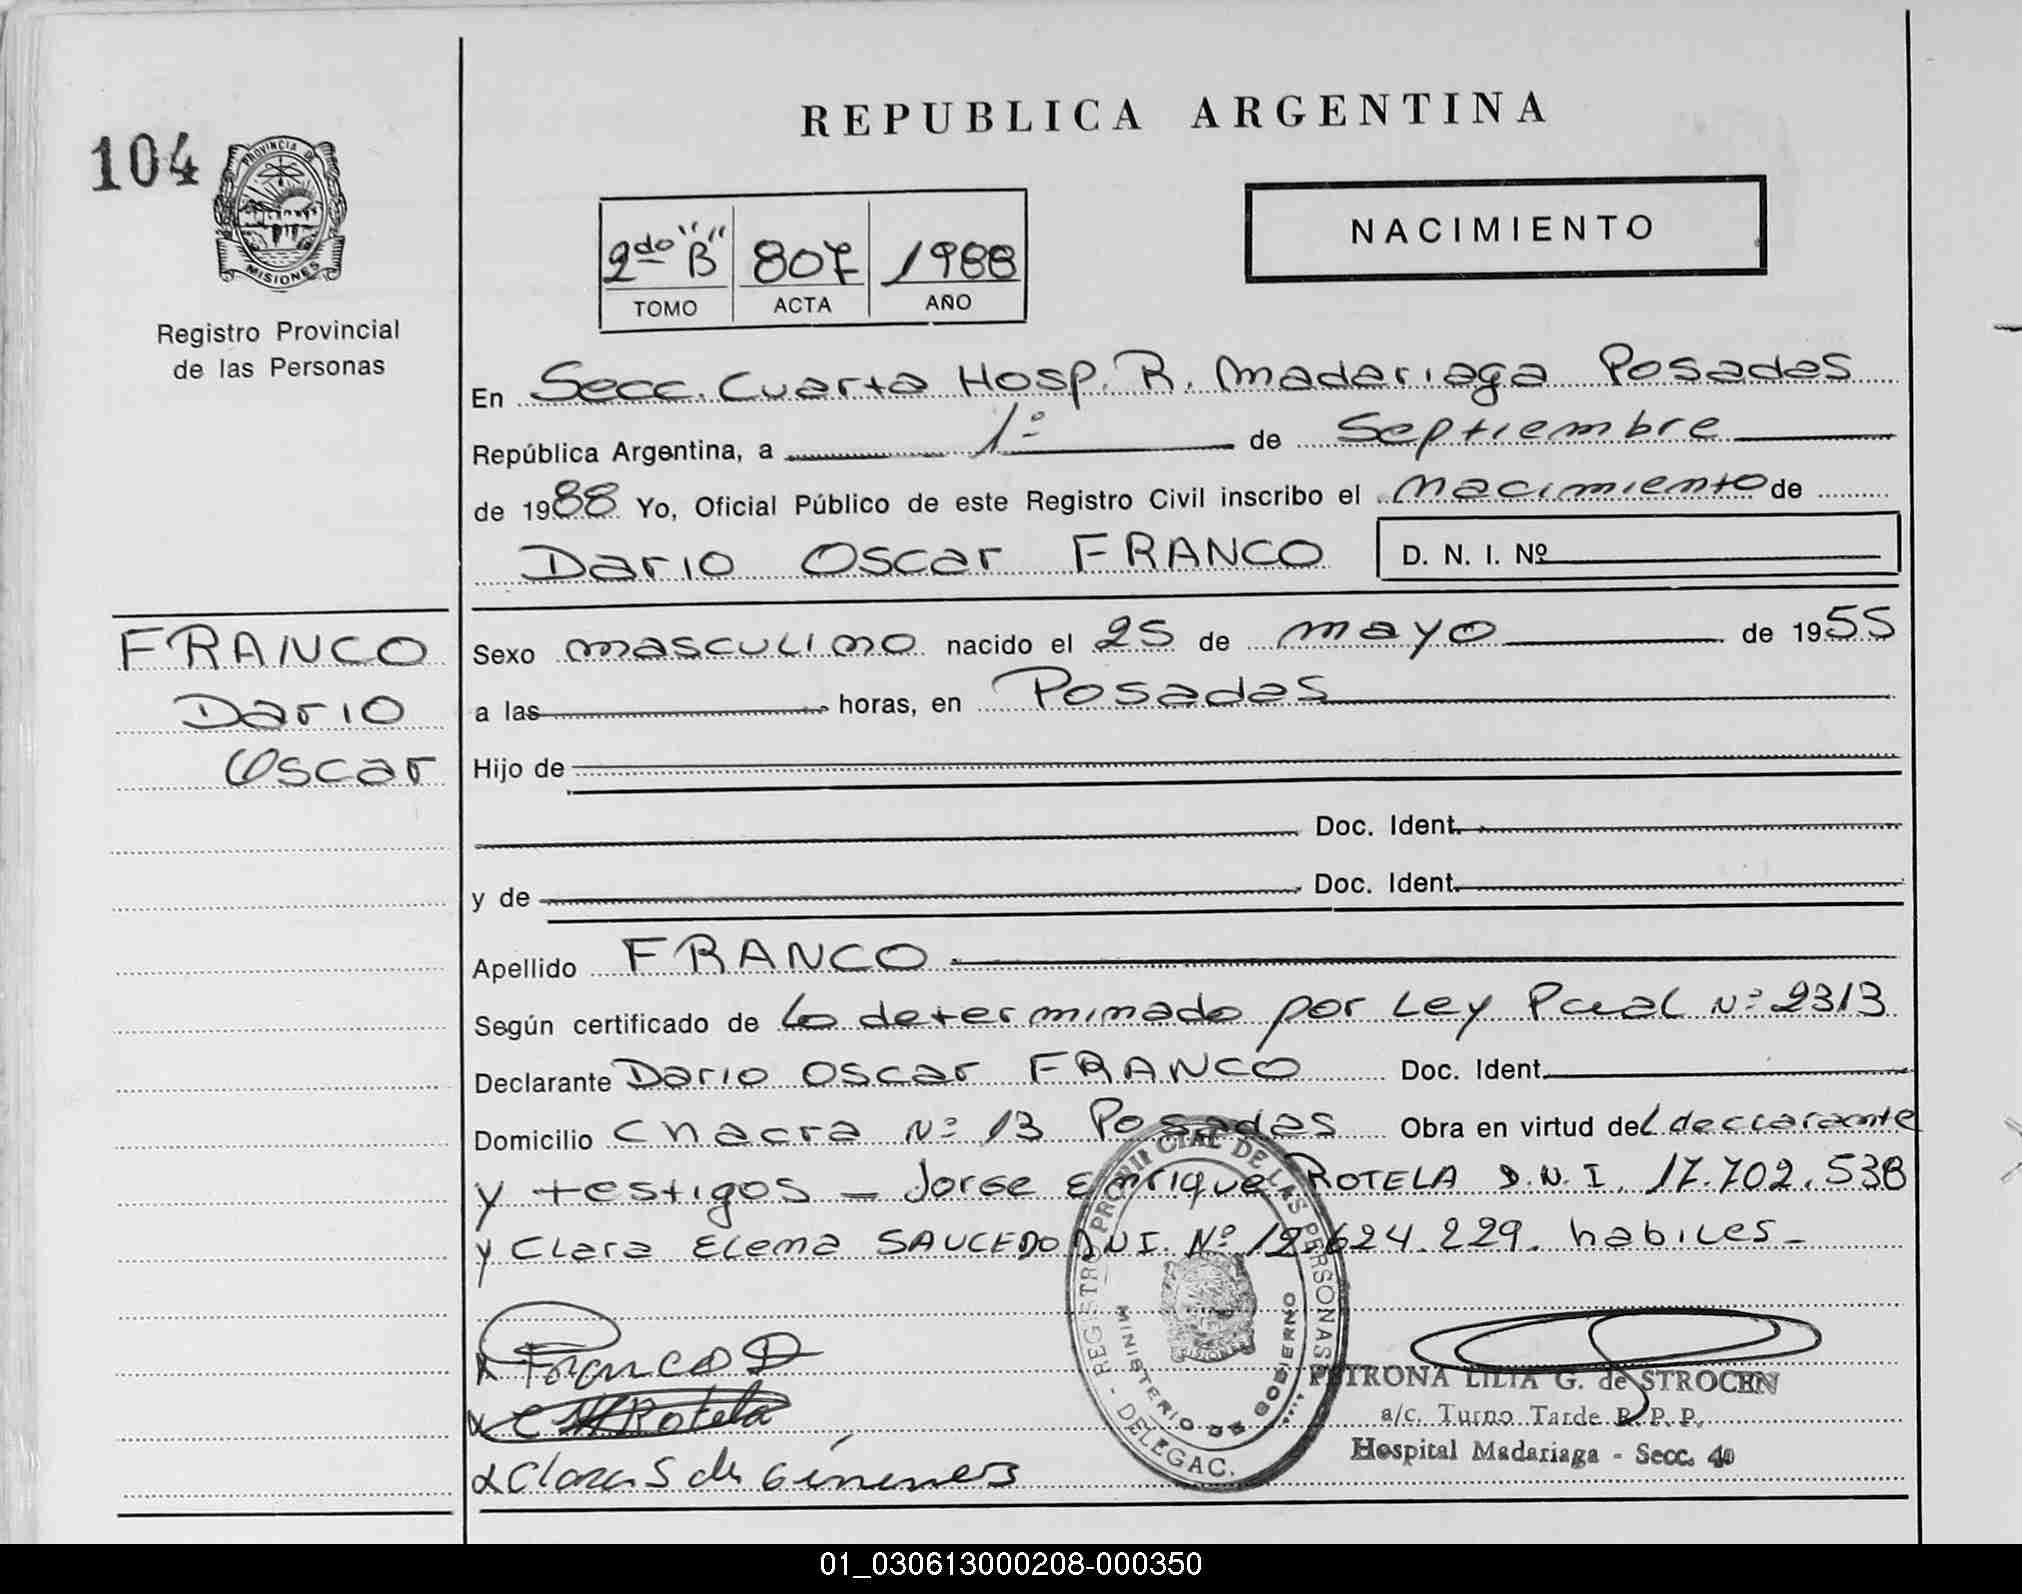 REPUBLICA ARGENTINA
104
PROVINCIA DE
MISIONES
Registro Provincial
de las Personas
NACIMIENTO
2do "B" 807 1988
TOMO ACTA AÑO
En Secc. Cuarta Hosp. R. Madariaga Posadas
República Argentina, a 1º de Septiembre
de 1988 Yo, Oficial Público de este Registro Civil inscribo el Nacimiento de
Dario Oscar FRANCO D. N. I. Nº
FRANCO
Dario
Oscar
Sexo masculino nacido el 25 de mayo de 1955
a las horas, en Posadas
Hijo de
Doc. Ident.
y de Doc. Ident.
Apellido FRANCO
Según certificado de lo determinado por Ley Pcial Nº 2313
Declarante Dario Oscar FRANCO Doc. Ident.
Domicilio Chacra Nº 13 Posadas Obra en virtud del declarante
y testigos - Jorge Enrique ROTELA D.N.I. 17.702.538
y Clara Elena SAUCEDO DNI. Nº 12.624.229. habiles -
x Franco D
x Rotela
x Clara S de
REGISTRO PROVINCIAL DE LAS PERSONAS - DELEGAC.
MINISTERIO DE GOBIERNO
MISIONES
PETRONA LILIA G. de STROCEN
a/c. Turno Tarde R. P. P.
Hospital Madariaga - Secc. 4º
01_030613000208-000350